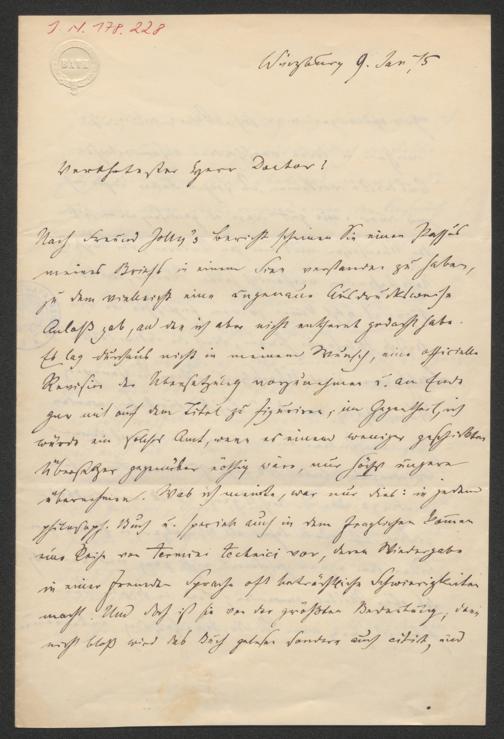 I. N. 178.228
BATH
Würzburg 9. Jan 75
Verehrtester Herr Doctor!
Nach Freund Jolly's Bericht scheinen Sie einen Passus
meines Briefs in einem Sinn verstanden zu haben,
zu dem vielleicht eine ungenaue Ausdrucksweise
Anlaß gab, an den ich aber nicht entfernt gedacht habe.
Es lag durchaus nicht in meinem Wunsch, eine officielle
Revision der Übersetzung vorzunehmen u. am Ende
gar mit auf dem Titel zu figuriren, im Gegentheil, ich
würde ein solches Amt, wenn es einem weniger geschickten
Übersetzer gegenüber nöthig wäre, nur höchst ungern
übernehmen. Was ich meinte, war nur dies: in jedem
philosoph. Buch u. speciell auch in dem fraglichen kommen
eine Reihe von termini technici vor, deren Wiedergabe
in einer fremden Sprache oft beträchtliche Schwierigkeiten
macht. Und doch ist sie von der größten Bedeutung, denn
nicht bloß wird das Buch gelesen sondern auch citirt, und